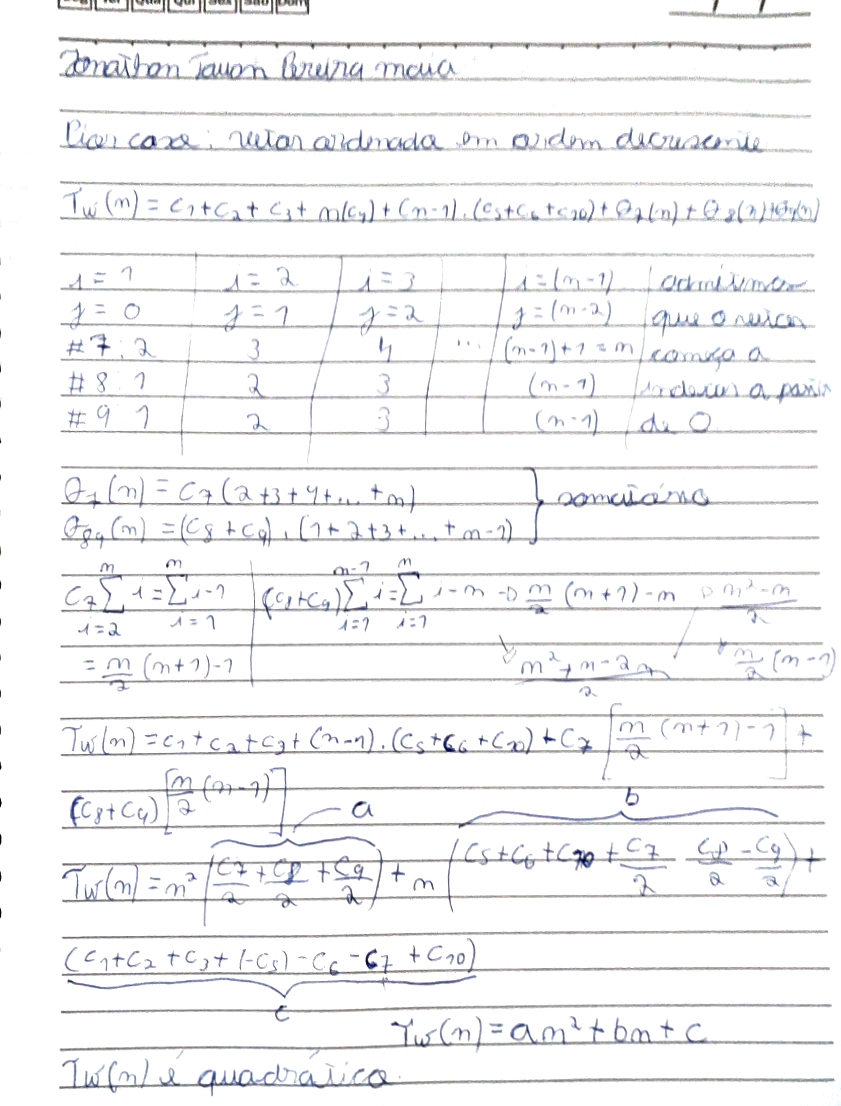 Seg Ter Qua Qui Sex Sáb Dom
Jonathan Tauan Pereira maia
Pior caso: vetor ordenado em ordem decrescente
Tw(n) = C1+C2+C3+n(C4)+(n-1).(C5+C6+C10)+Θ7(n)+Θ8(n)+Θ9(n)
i=1 i=2 i=3 i=(n-1) admitimos
j=0 j=1 j=2 j=(n-2) que o vetor
#7: 2 3 4 ... (n-1)+1=n começa a
#8: 1 2 3 (n-1) indexar a partir
#9 1 2 3 (n-1) de 0
Θ7(n) = C7(2+3+4+...+n) } somatório
Θ89(n) = (C8+C9).(1+2+3+...+n-1)
C7 n∑i=2 i = n∑i=1 i-1 | (C8+C9) n-1∑i=1 i = n∑i=1 i-n → n/2 (n+1)-n → n²-n/2
= n/2 (n+1)-1 n²+n-2n/2 n/2 (n-1)
Tw(n) = C1+C2+C3+(n-1).(C5+C6+C10)+C7 [n/2 (n+1)-1] +
(C8+C9) [n/2 (n-1)] a b
Tw(n) = n² (C7/2 + C8/2 + C9/2) + n (C5+C6+C10 + C7/2 - C8/2 - C9/2) +
(C1+C2+C3+(-C5)-C6-C7+C10)
c
Tw(n) = an²+bn+c
Tw(n) é quadrática.